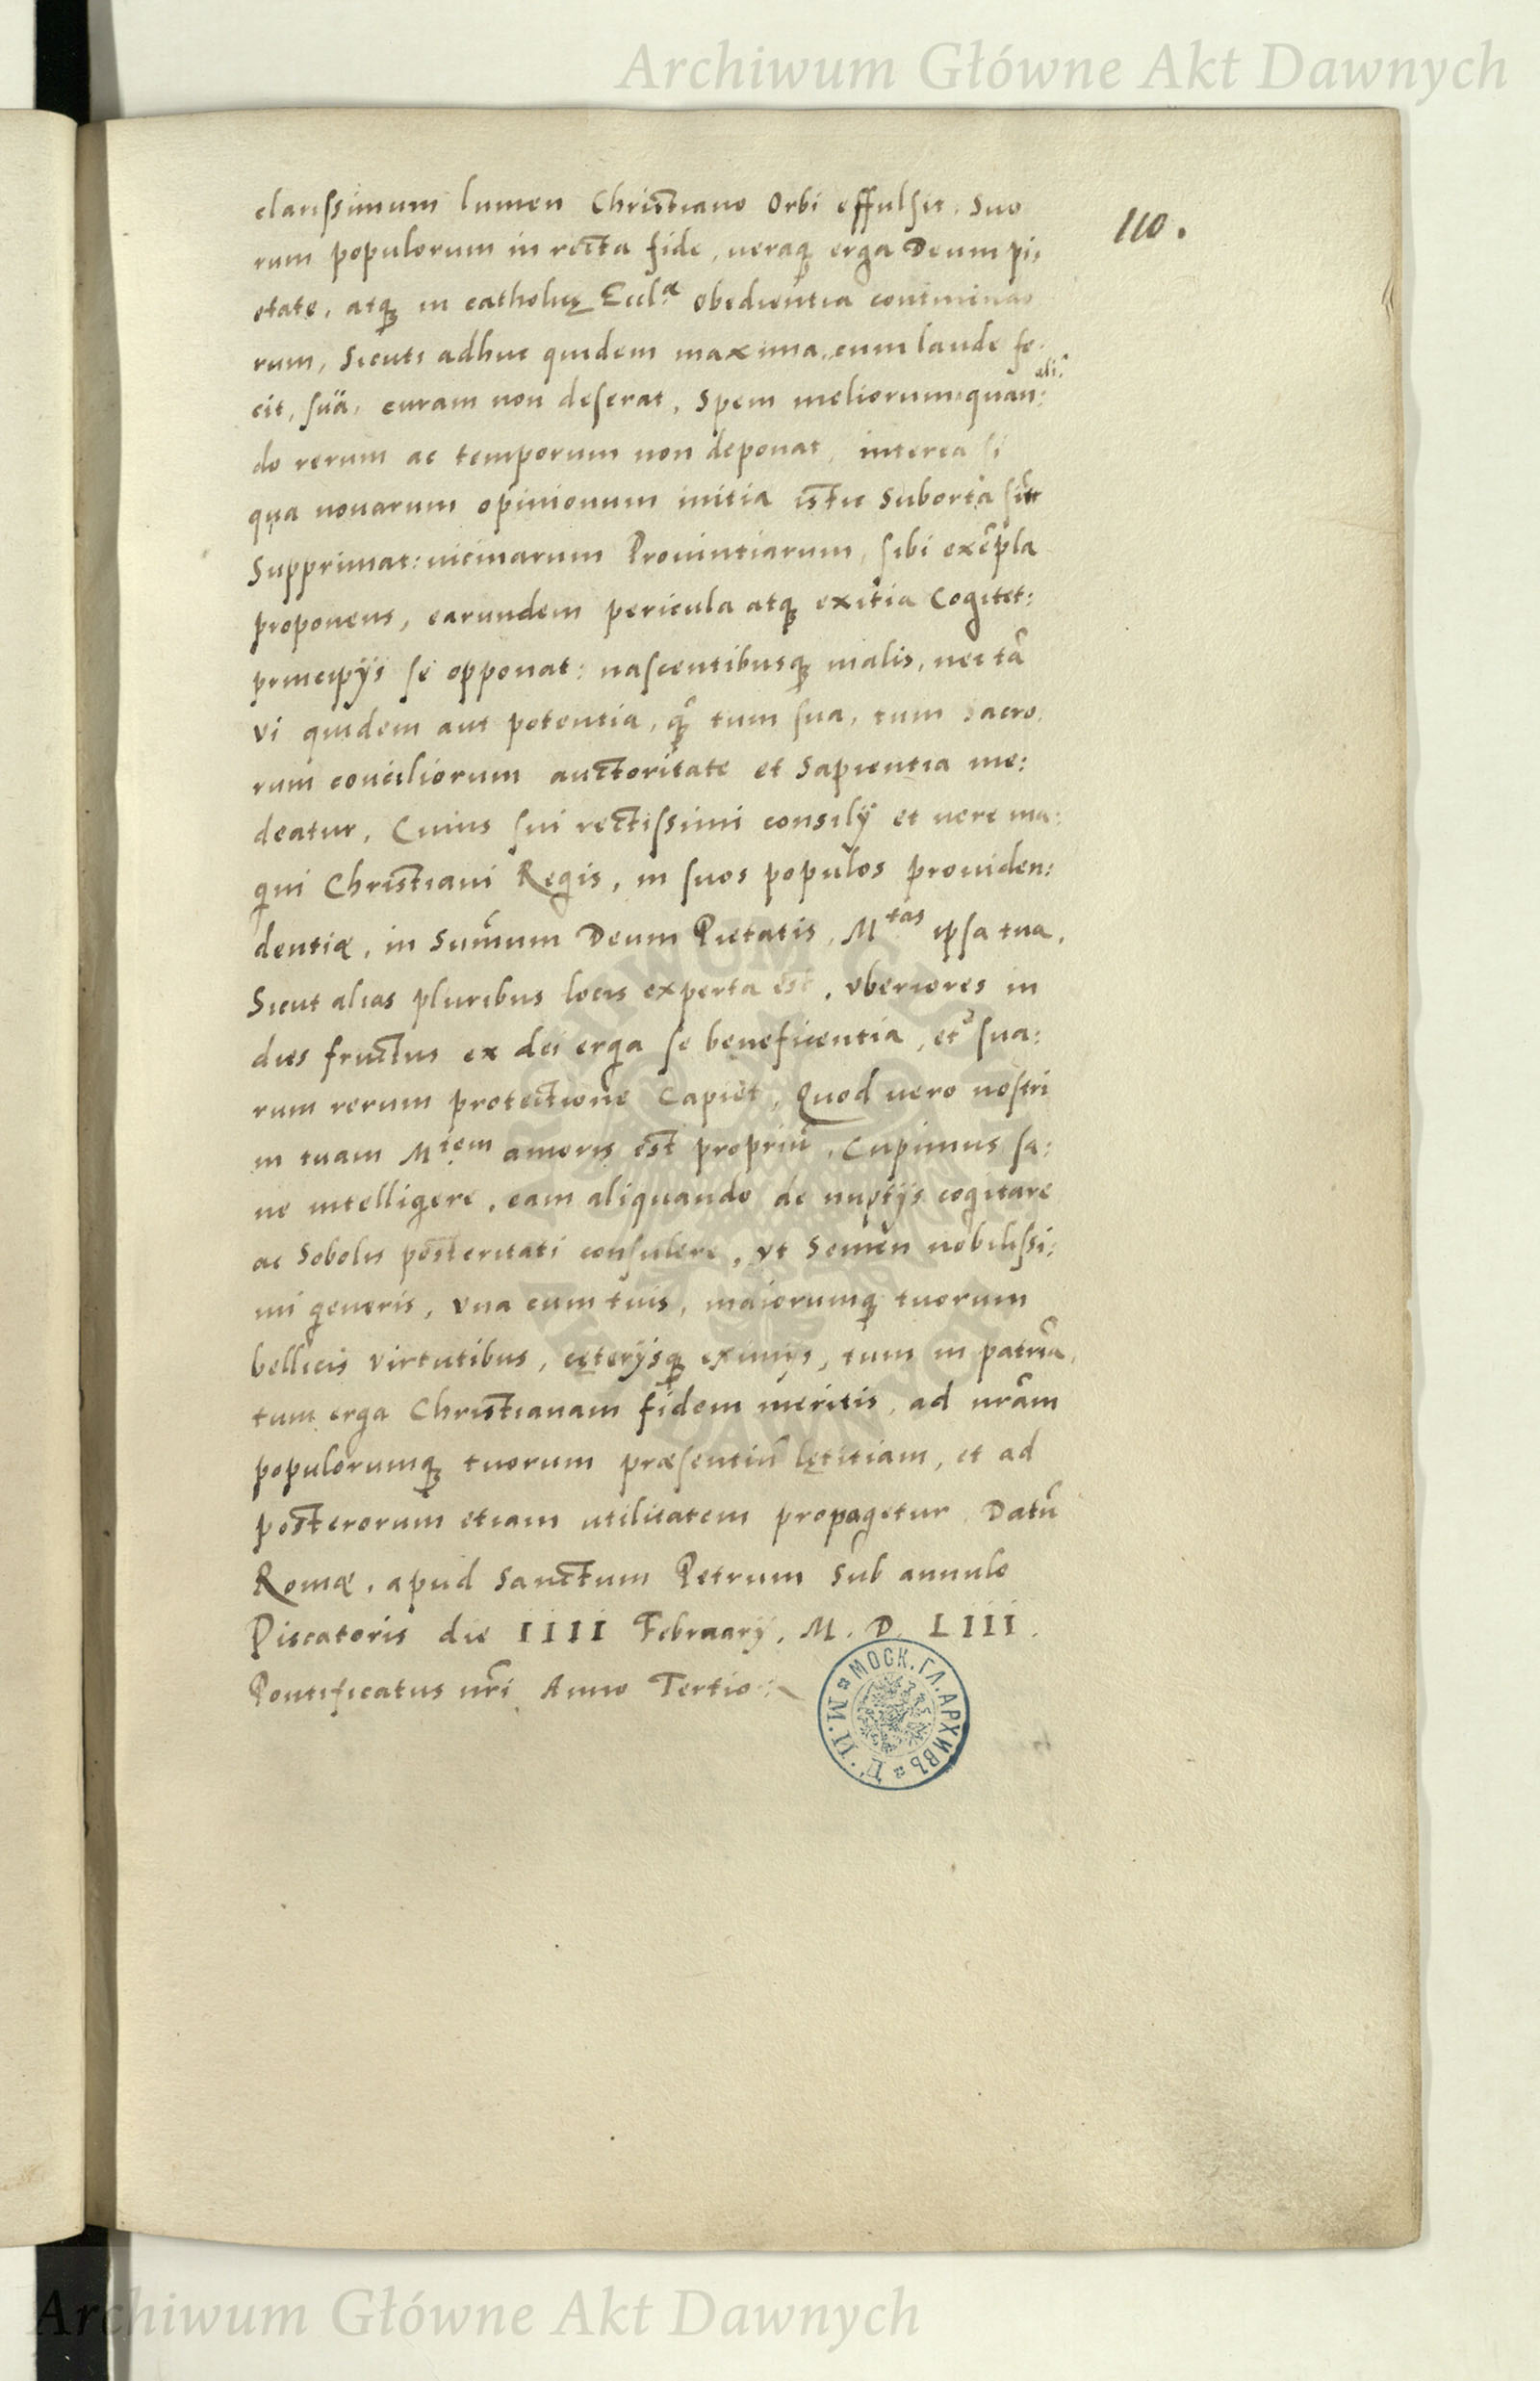 Archiwum Główne Akt Dawnych
110.
clarissimum lumen Christiano Orbi effulsit. Suo
rum populorum in recta fide, ueraq; erga Deum pi,
etate, atq; in catholicę Eccl.æ obedientia continuao
rum, Sicuti adhuc quidem maxima, cum laude fe.
cit, suä, curam non deserat, Spem meliorum aliquan:
do rerum ac temporum non deponat, interea si
qua nouarum opinionum initia istic Suborta sint
Supprimat: uicinarum Prouintiarum, sibi exẽpla
proponens, earundem pericula atq; exitia Cogitet:
principijs se opponat: nascentibusq; malis, nec tã
vi quidem aut potentia, q̃ tum sua, tum Sacro,
rum conciliorum auctoritate et Sapientia me:
deatur, Cuius sui rectissimi consilij et uere ma:
gni Christiani Regis, in suos populos prouiden:
dentiæ, in Sum̃um Deum Pietatis, M.tas ipsa tua,
Sicut alias pluribus locis experta est, vberiores in
dies fructus ex dei erga se beneficentia, et sua:
rum rerum protectione Capiet, Quod uero nostri
in tuam M.tem amoris est propriũ, Cupimus sa:
ne intelligere, eam aliquando de nuptijs cogitare
ac Sobolis posteritati consulere, vt Semen nobilissi:
mi generis, vna cum tuis, maiorumq; tuorum
bellicis virtutibus, cęterijsq; eximijs, tum in patriã,
tum erga Christianam fidem meritis, ad nr̃am
populorumq; tuorum præsentiũ lętitiam, et ad
posterorum etiam utilitatem propagetur. Datũ
Romæ, apud Sanctum Petrum Sub annulo
Piscatoris die IIII Februarij, M. D. LIII.
Pontificatus nr̃i Anno Tertio:
МОСК. ГЛ. АРХИВЪ М. И. Д.
ARCHIWUM GŁÓWNE AKT DAWNYCH
Archiwum Główne Akt Dawnych